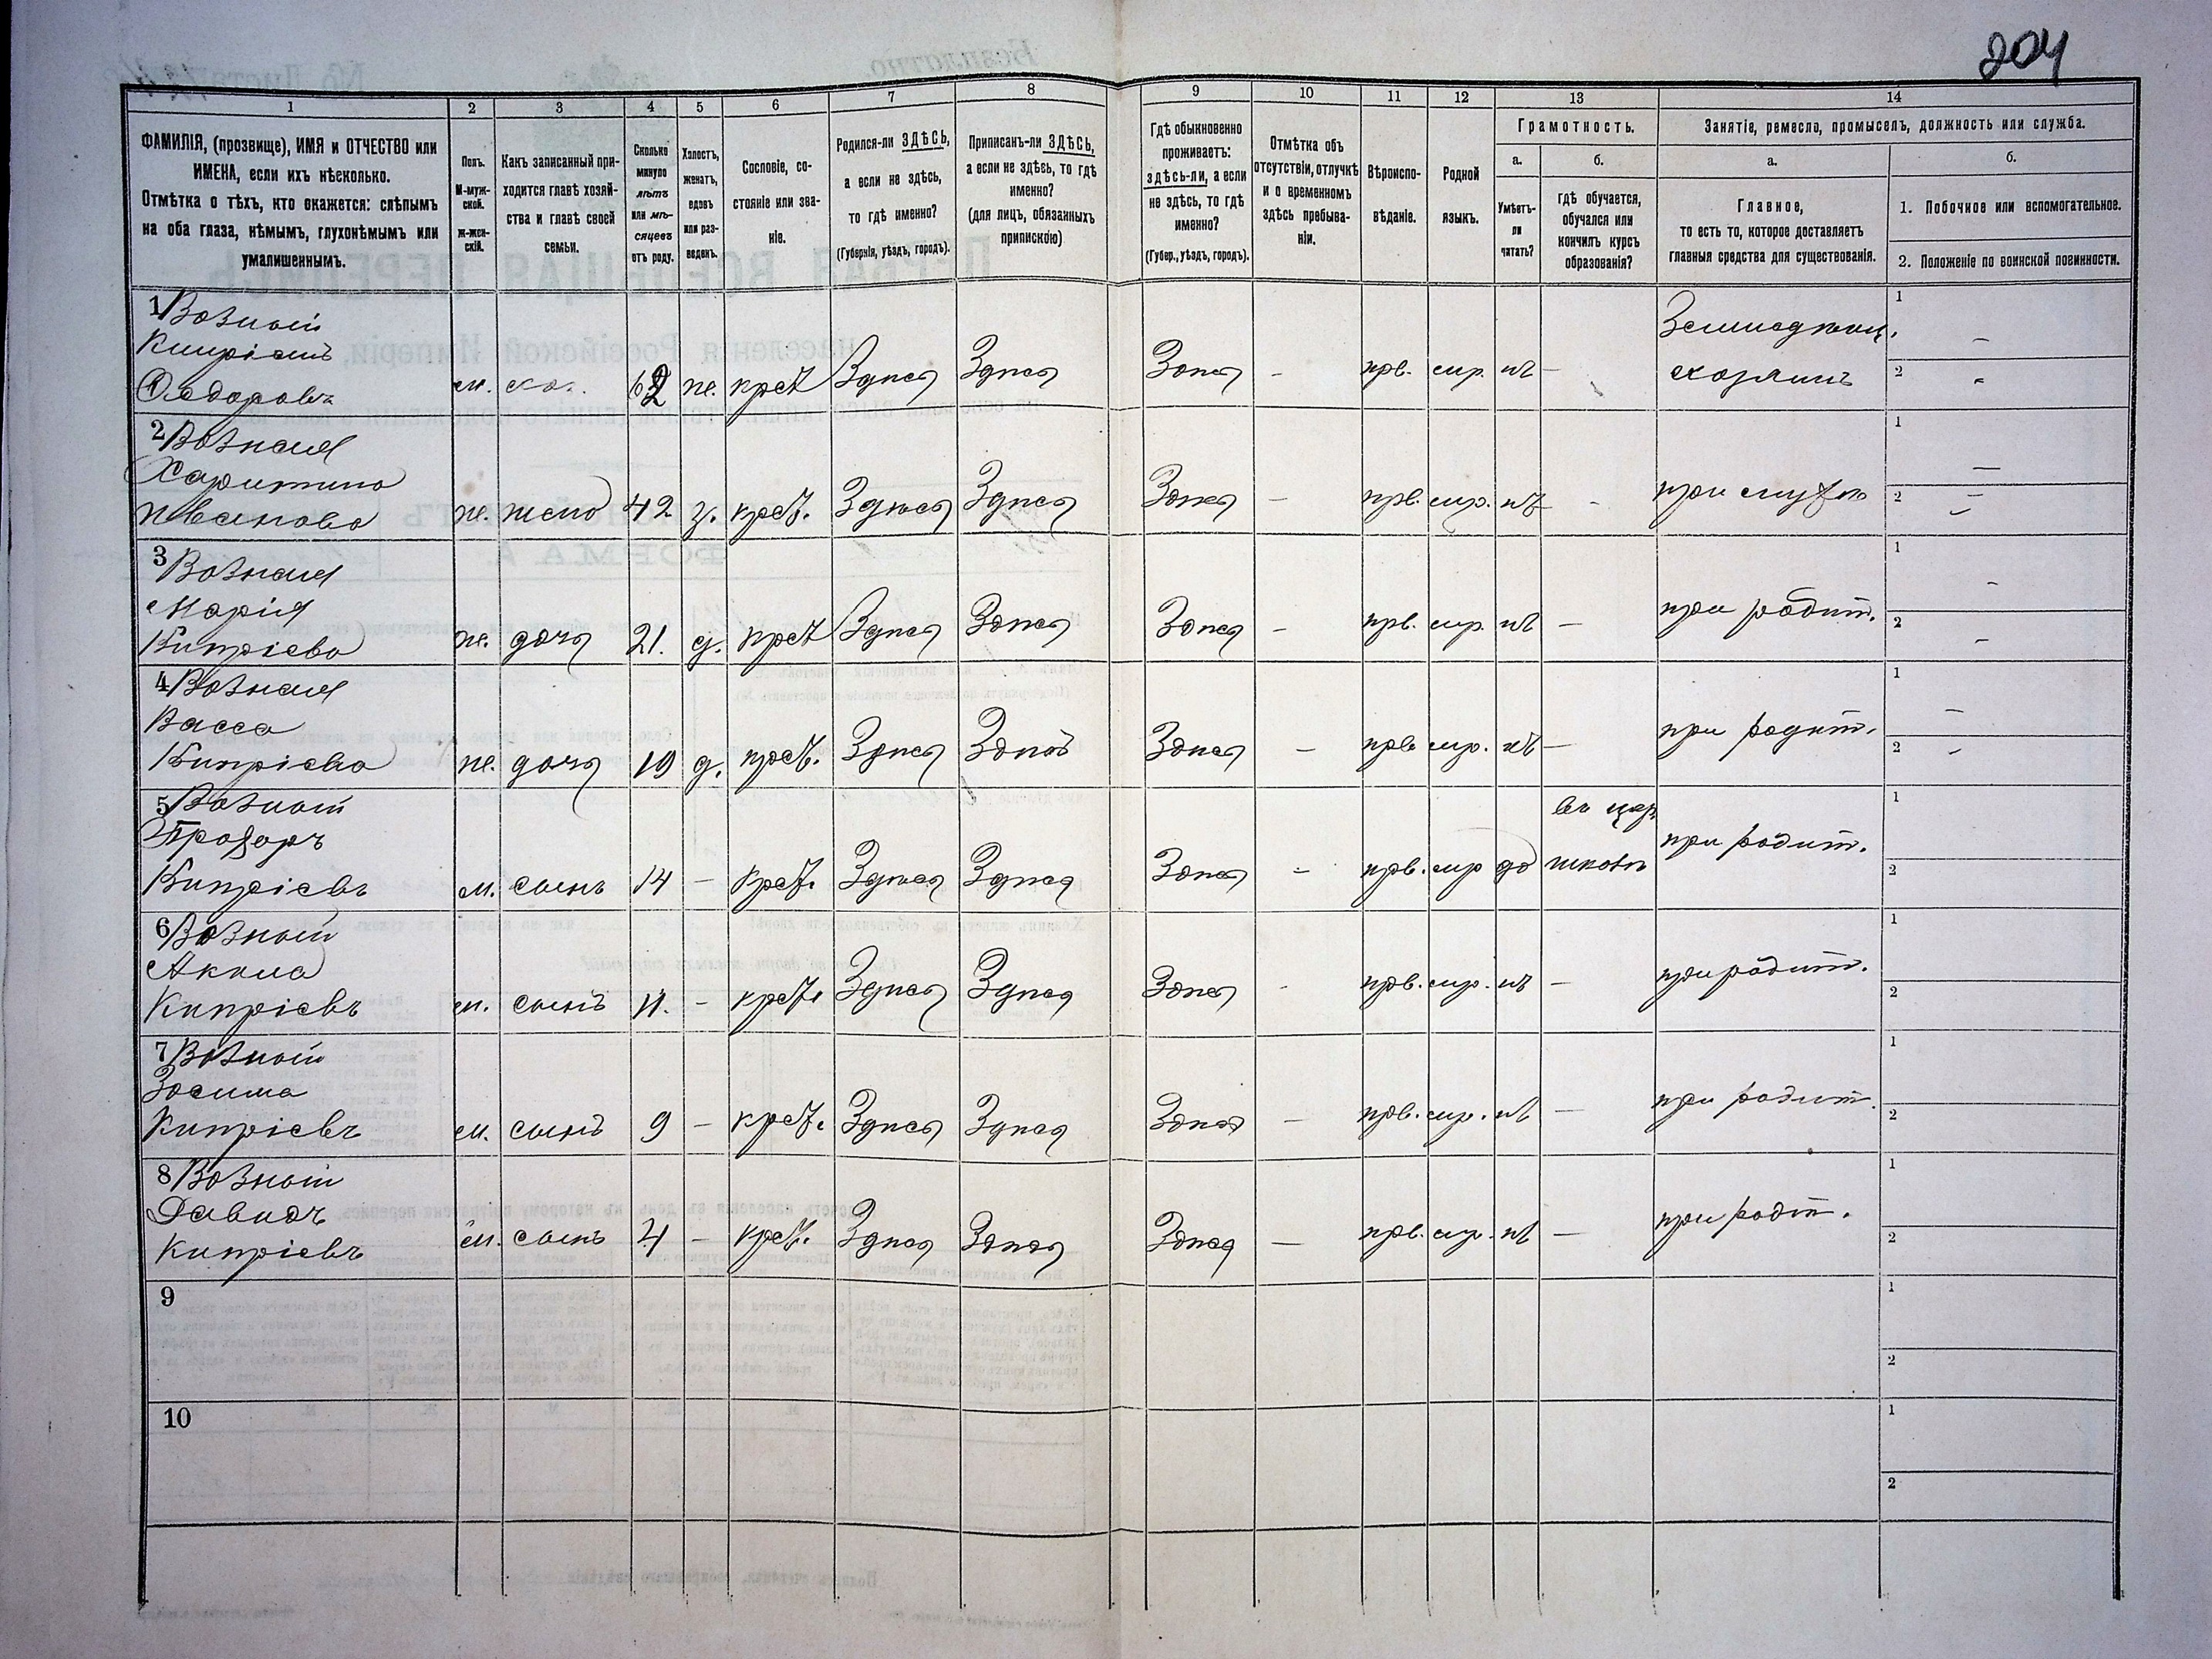 204
1 2 3 4 5 6 7 8 9 10 11 12 13 14
ФАМИЛІЯ, (прозвище), ИМЯ и ОТЧЕСТВО или
ИМЕНА, если ихъ нѣсколько.
Отмѣтка о тѣхъ, кто окажется: слѣпымъ
на оба глаза, нѣмымъ, глухонѣмымъ или
умалишеннымъ.
Полъ.
М-муж-
ской.
ж-жен-
скій.
Какъ записанный при-
ходится главѣ хозяй-
ства и главѣ своей
семьи.
Сколько
минуло
лѣтъ
или мѣ-
сяцевъ
отъ роду.
Холостъ,
женатъ,
вдовъ
или раз-
веденъ.
Сословіе, со-
стояніе или зва-
ніе.
Родился-ли ЗДѢСЬ,
а если не здѣсь,
то гдѣ именно?
(Губернія, уѣздъ, городъ).
Приписанъ-ли ЗДѢСЬ,
а если не здѣсь, то гдѣ
именно?
(для лицъ, обязанныхъ
припискою)
Гдѣ обыкновенно
проживаетъ:
здѣсь-ли, а если
не здѣсь, то гдѣ
именно?
(Губер., уѣздъ, городъ).
Отмѣтка объ
отсутствіи, отлучкѣ
и о временномъ
здѣсь пребыва-
ніи.
Вѣроиспо-
вѣданіе.
Родной
языкъ.
Грамотность.
а.
Умѣетъ-
ли
читать?
б.
гдѣ обучается,
обучался или
кончилъ курсъ
образованія?
Занятіе, ремесло, промыселъ, должность или служба.
а.
Главное,
то есть то, которое доставляетъ
главныя средства для существованія.
б.
1. Побочное или вспомогательное.
2. Положеніе по воинской повинности.
1 Возный
Кипріанъ
Федоровъ м. хоз. 62 же. крст Здѣсь Здѣсь Здѣсь - прв. мр. нѣ - Земледѣлец, хозяинъ 1 - 2 -
2 Возная
Харитина
Иванова же. жена 42 з. крст. Здѣсь Здѣсь Здѣсь - прв. мр. нѣ - при мужѣ 1 - 2 -
3 Возная
Марія
Кипріева же. дочь 21. д. крст Здѣсь Здѣсь Здѣсь - прв. мр. нѣ - при родит. 1 - 2 -
4 Возная
Васса
Кипріева же. дочь 19 д. крст. Здѣсь Здѣсь Здѣсь - прв мр. нѣ - при родит. 1 - 2 -
5 Возный
Прохоръ
Кипріевъ м. сынъ 14 - крст. Здѣсь Здѣсь Здѣсь - прв. мр да въ цер. школѣ при родит. 1 2
6 Возный
Акила
Кипріевъ м. сынъ 11. - крст. Здѣсь Здѣсь Здѣсь - прв. мр. нѣ - при родит. 1 2
7 Возный
Зосима
Кипріевъ м. сынъ 9 - крст. Здѣсь Здѣсь Здѣсь - прв. мр. нѣ - при родит. 1 2
8 Возный
Давидъ
Кипріевъ м. сынъ 4 - крст. Здѣсь Здѣсь Здѣсь - прв. мр. нѣ - при родит. 1 2
9 1 2
10 1 2